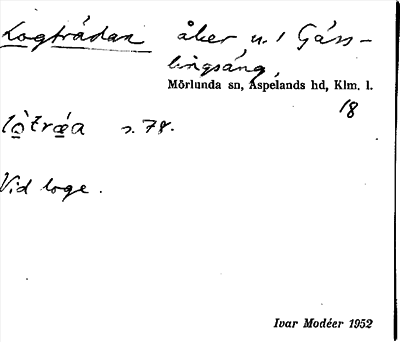 Logträdan åker n. 1 Gäss-
lingsäng,
Mörlunda sn, Aspelands hd, Klm. l.
18
s. 78.
Vid loge.
Ivar Modéer 1952